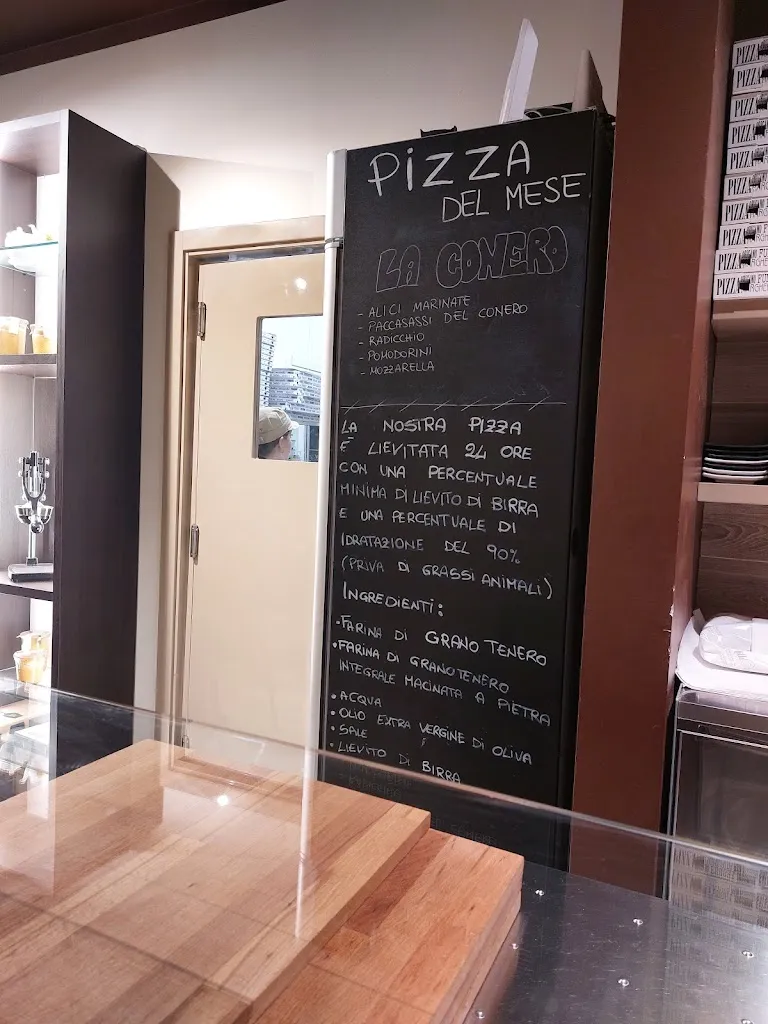 PIZZA
DEL MESE
LA CONERO
- ALICI MARINATE
- PACCASASSI DEL CONERO
- RADICCHIO
- POMODORINI
- MOZZARELLA
LA NOSTRA PIZZA
È LIEVITATA 24 ORE
CON UNA PERCENTUALE
MINIMA DI LIEVITO DI BIRRA
E UNA PERCENTUALE DI
IDRATAZIONE DEL 90%
(PRIVA DI GRASSI ANIMALI)
INGREDIENTI:
• FARINA DI GRANO TENERO
• FARINA DI GRANO TENERO
INTEGRALE MACINATA A PIETRA
• ACQUA
• OLIO EXTRA VERGINE DI OLIVA
• SALE
• LIEVITO DI BIRRA
PIZZA
PIZZA
PIZZA
PIZZA
PIZZA
PIZZA
PIZZA
PIZZA
PIZZA
PIZZA